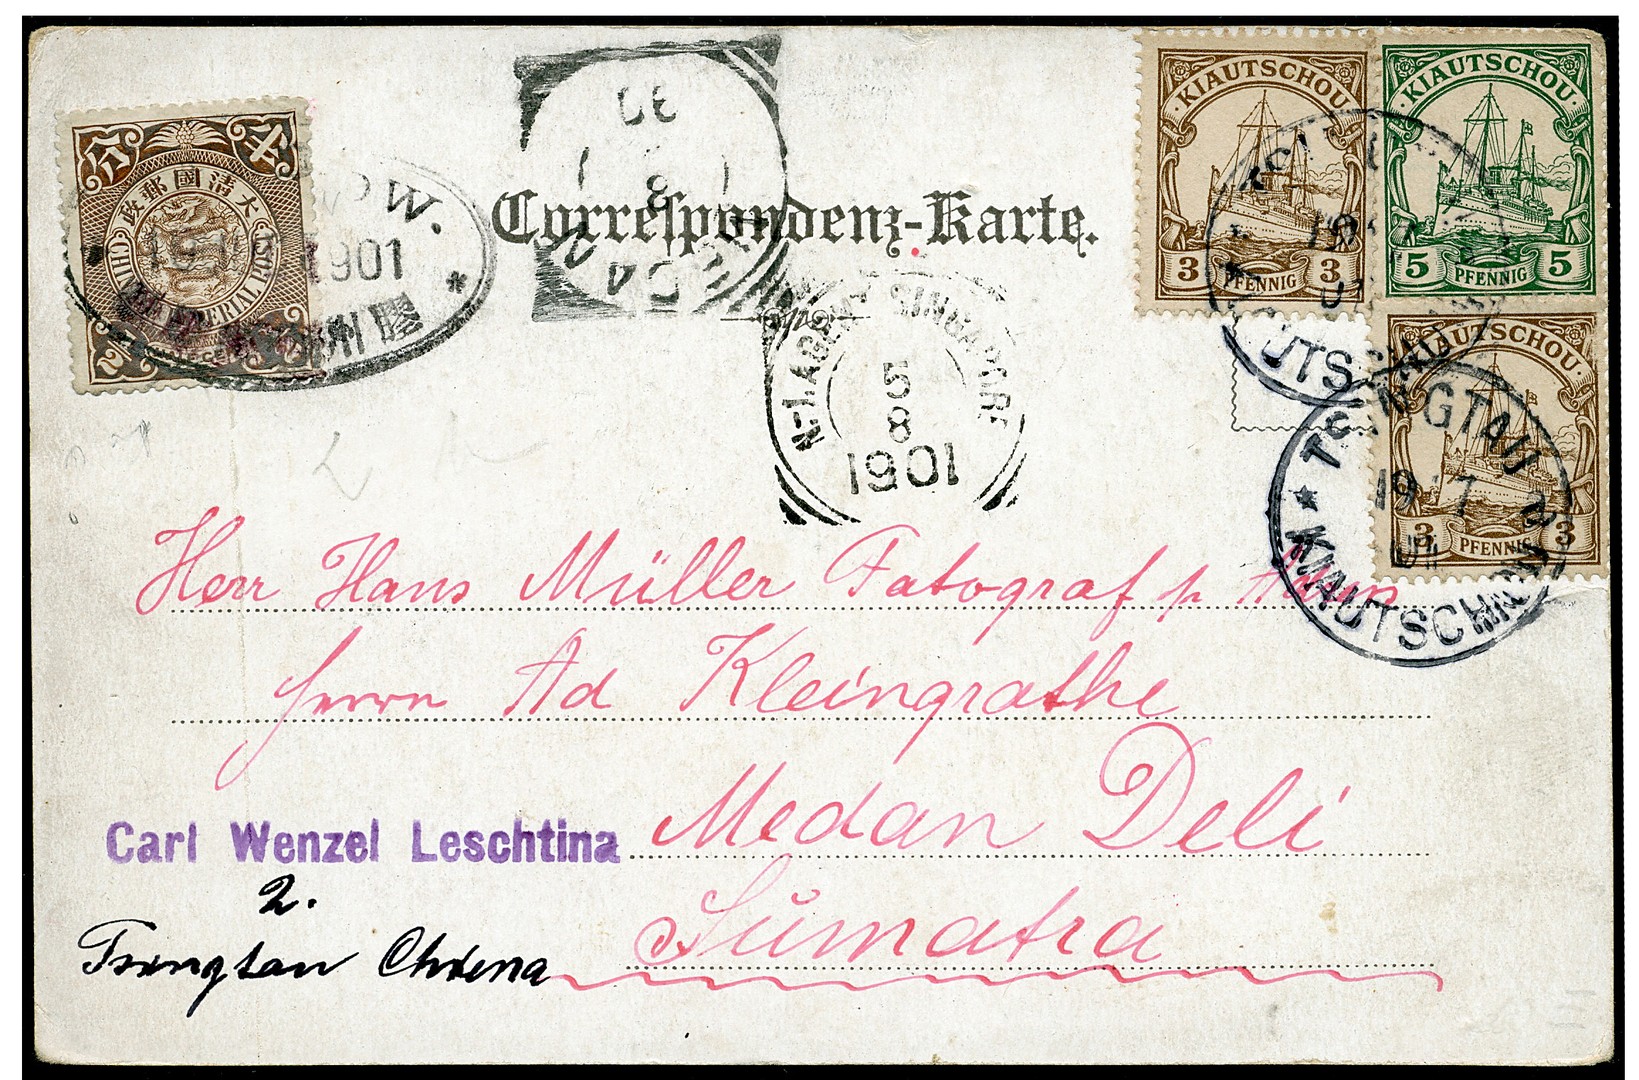 大清國郵政
CHINESE IMPERIAL POST
OW.
1901
膠州
Correspondenz-Karte.
KIAUTSCHOU
3 PFENNIG 3
KIAUTSCHOU
5 PFENNIG 5
KIAUTSCHOU
3 PFENNIG 3
N-I. AGENT SINGAPORE
5
8
1901
TSINGTAU
KIAUTSCHOU
Herr Hans Müller Fatograf p Adr.
Herrn Ad Kleingrothe
Medan Deli
Sumatra
Carl Wenzel Leschtina
2.
Tsingtau China